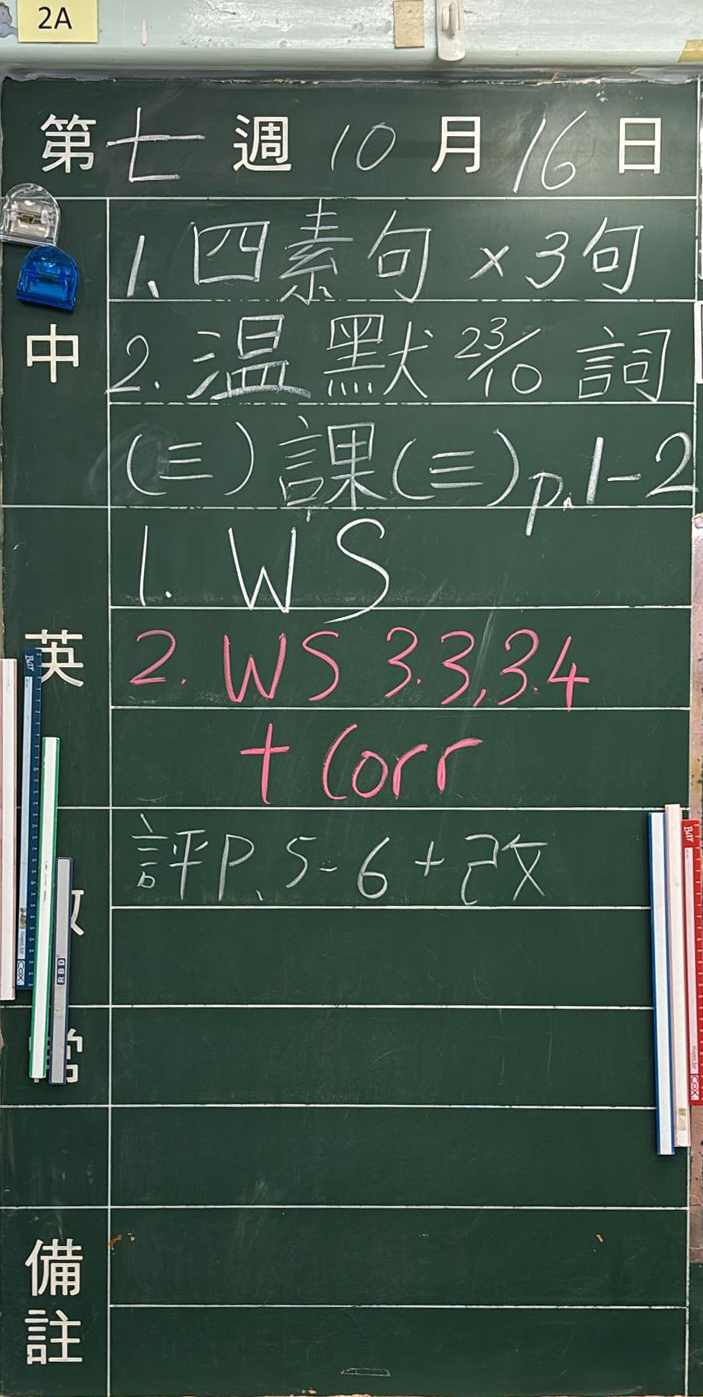 2A
第七週10月16日
中
1. 四素句 × 3句
2. 温默 23/10 詞
(三) 課(三) p.1-2
英
1. WS
2. WS 3.3, 3.4
+ Corr
評P. 5-6 + 改
常
備註